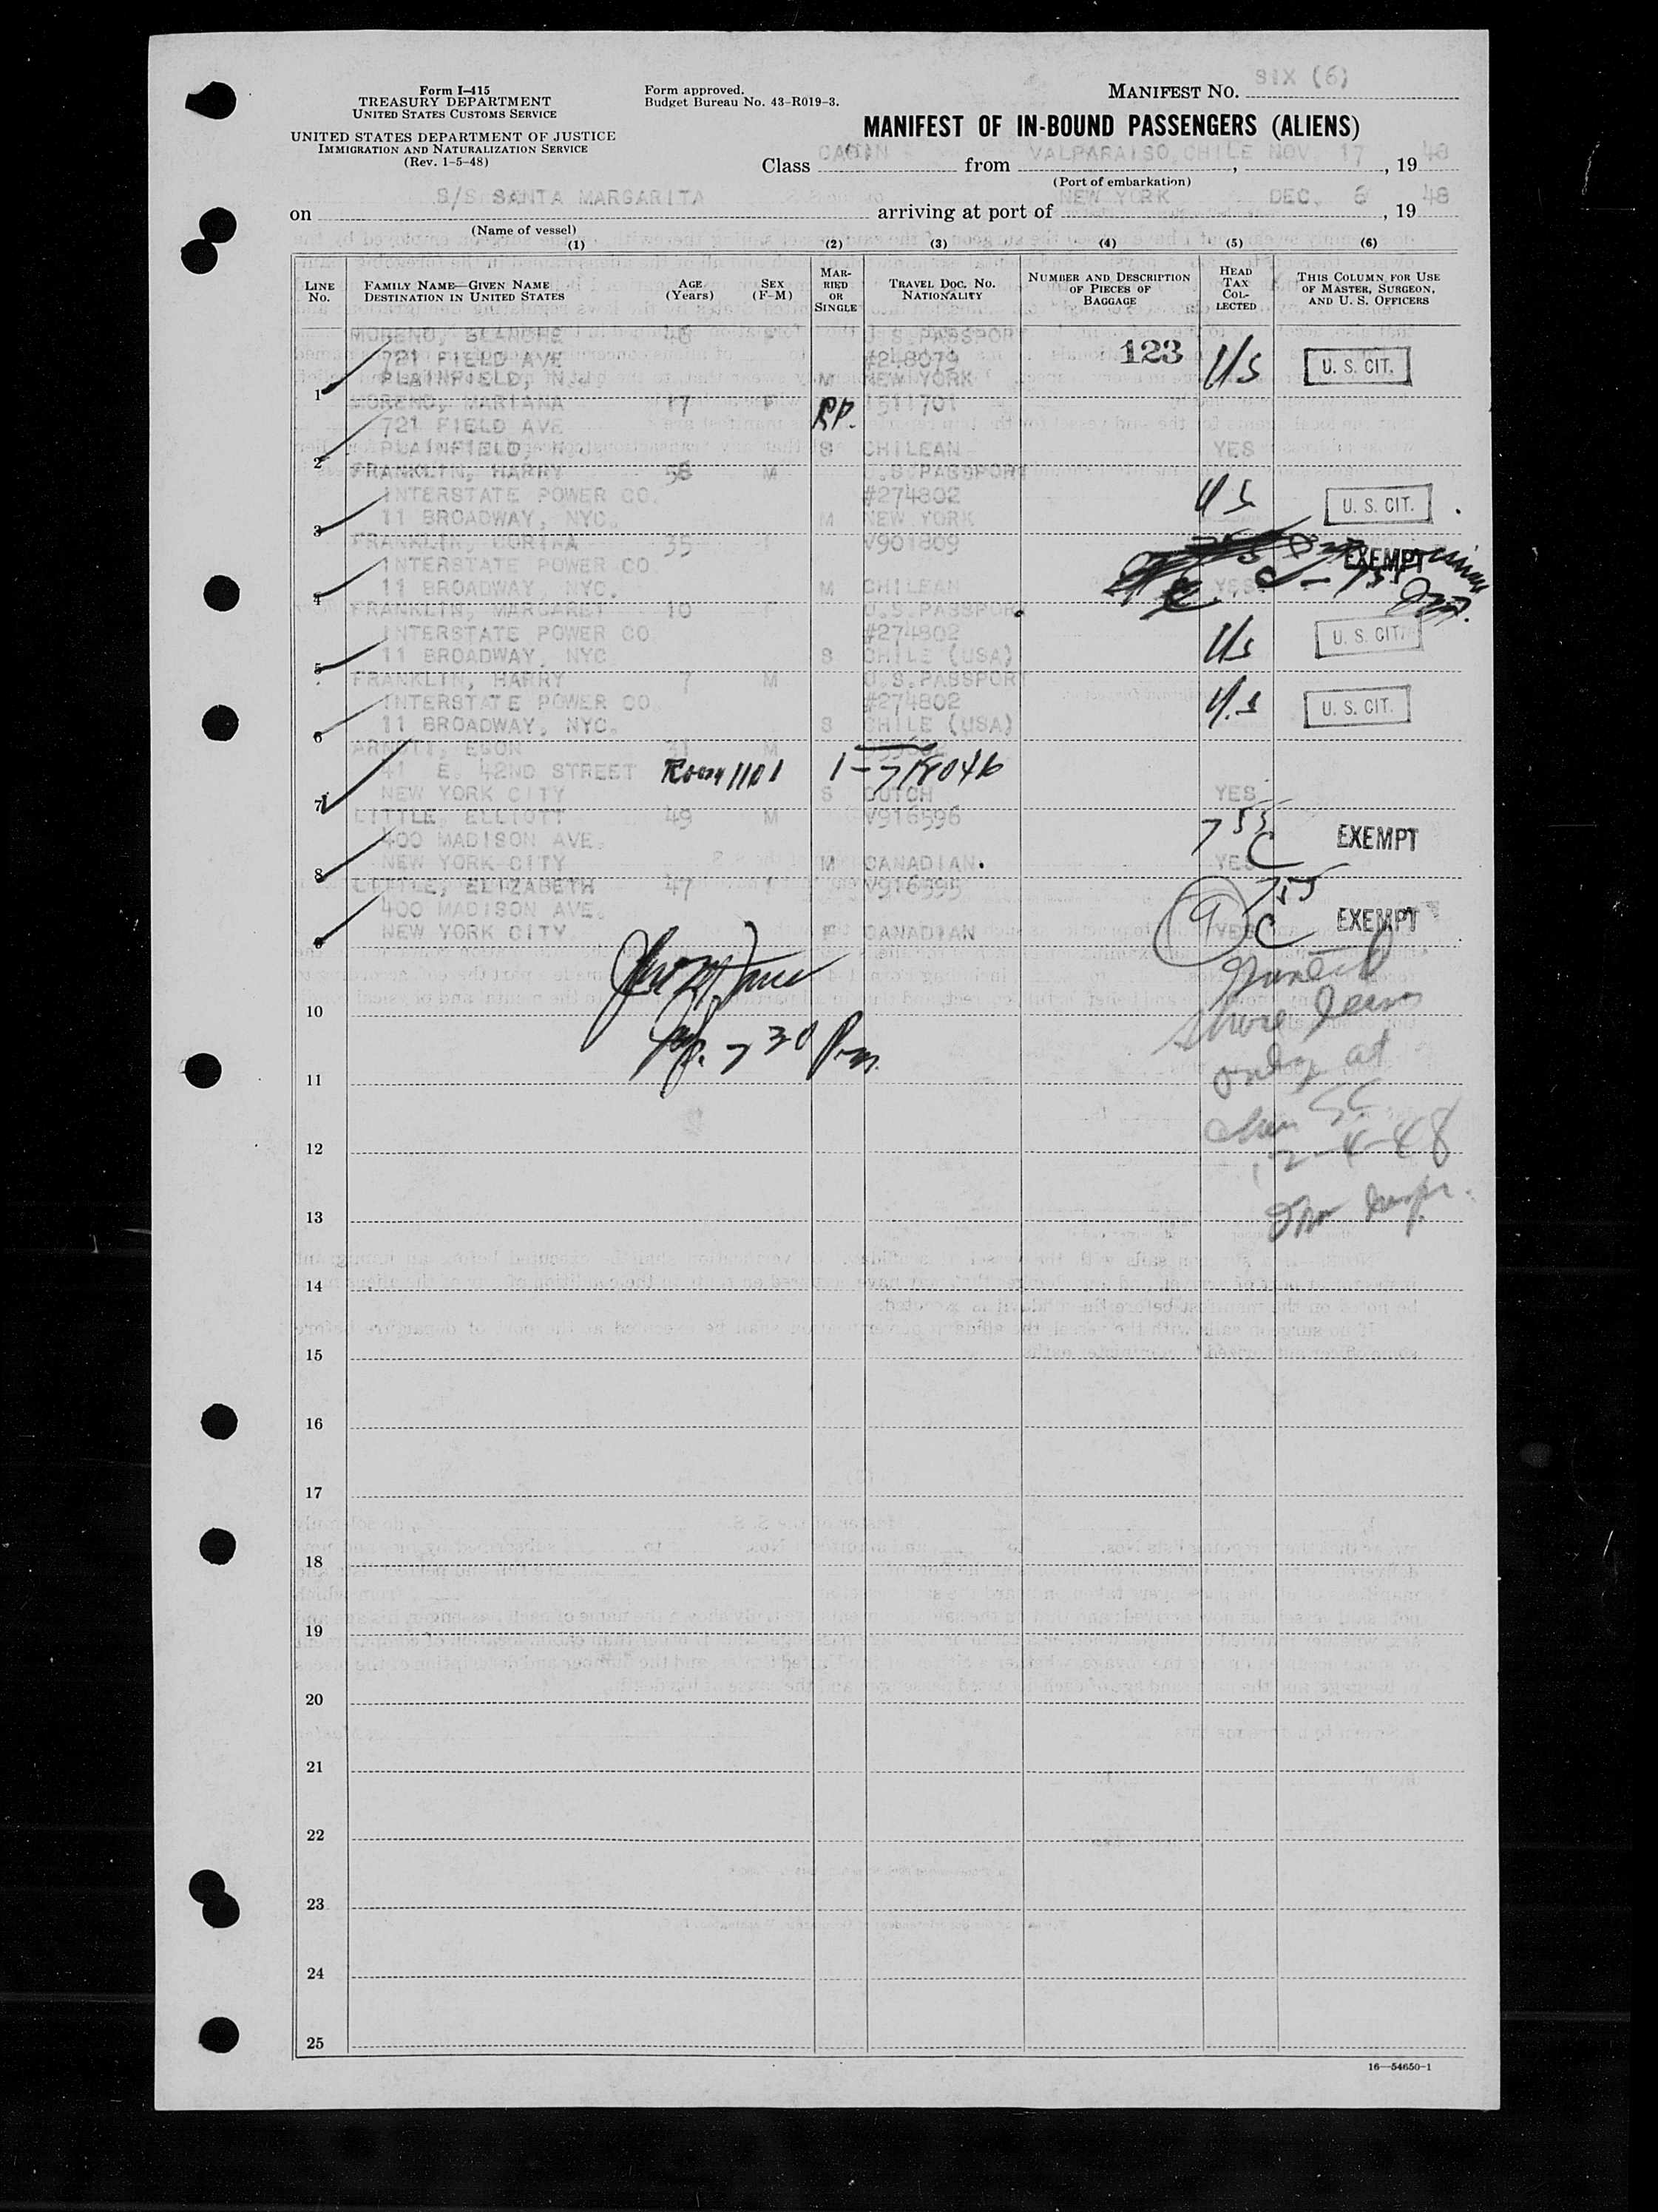 Form I-415
TREASURY DEPARTMENT
UNITED STATES CUSTOMS SERVICE
UNITED STATES DEPARTMENT OF JUSTICE
IMMIGRATION AND NATURALIZATION SERVICE
(Rev. 1-5-48)
Form approved.
Budget Bureau No. 43-R019-3.
MANIFEST NO. SIX (6)
MANIFEST OF IN-BOUND PASSENGERS (ALIENS)
Class CABIN from VALPARAISO, CHILE NOV. 17, 1948
(Port of embarkation)
on S/S SANTA MARGARITA arriving at port of NEW YORK DEC. 6, 1948
(Name of vessel)
(1) (2) (3) (4) (5) (6)
LINE No. FAMILY NAME—GIVEN NAME DESTINATION IN UNITED STATES AGE (Years) SEX (F-M) MARRIED OR SINGLE TRAVEL DOC. NO. NATIONALITY NUMBER AND DESCRIPTION OF PIECES OF BAGGAGE HEAD TAX COLLECTED THIS COLUMN FOR USE OF MASTER, SURGEON, AND U. S. OFFICERS
MORENO, BLANCHE 46 F U.S. PASSPORT
721 FIELD AVE #248079 123 US U. S. CIT.
1 PLAINFIELD, N.J. M NEW YORK
MORENO, MARIANA 17 F RP. 1511701
721 FIELD AVE
2 PLAINFIELD, N.J. S CHILEAN YES
FRANKLIN, HARRY 58 M U.S. PASSPORT
INTERSTATE POWER CO. #274802 US U. S. CIT.
3 11 BROADWAY, NYC. M NEW YORK
FRANKLIN, 35 F V901809 EXEMPT
INTERSTATE POWER CO.
4 11 BROADWAY, NYC. M CHILEAN YES
FRANKLIN, MARGARET 10 F U.S. PASSPORT
INTERSTATE POWER CO. #274802 US U. S. CIT.
5 11 BROADWAY, NYC S CHILE (USA)
FRANKLIN, HARRY 7 M U.S. PASSPORT
INTERSTATE POWER CO. #274802 U.S U. S. CIT.
6 11 BROADWAY, NYC. S CHILE (USA)
EGON 31 M
41 E. 42ND STREET Room 1101 1-718046
7 NEW YORK CITY S DUTCH YES
LITTLE, ELLIOTT 49 M V916596
400 MADISON AVE. 755 C EXEMPT
8 NEW YORK CITY M CANADIAN. YES
LITTLE, ELIZABETH 47 F V916595
400 MADISON AVE. 9 755 C EXEMPT
9 NEW YORK CITY F CANADIAN YES
Granted
shore leave
10
only at
7 30 P.m.
11
12
12-4-48
13
14
15
16
17
18
19
20
21
22
23
24
25
16—54650-1